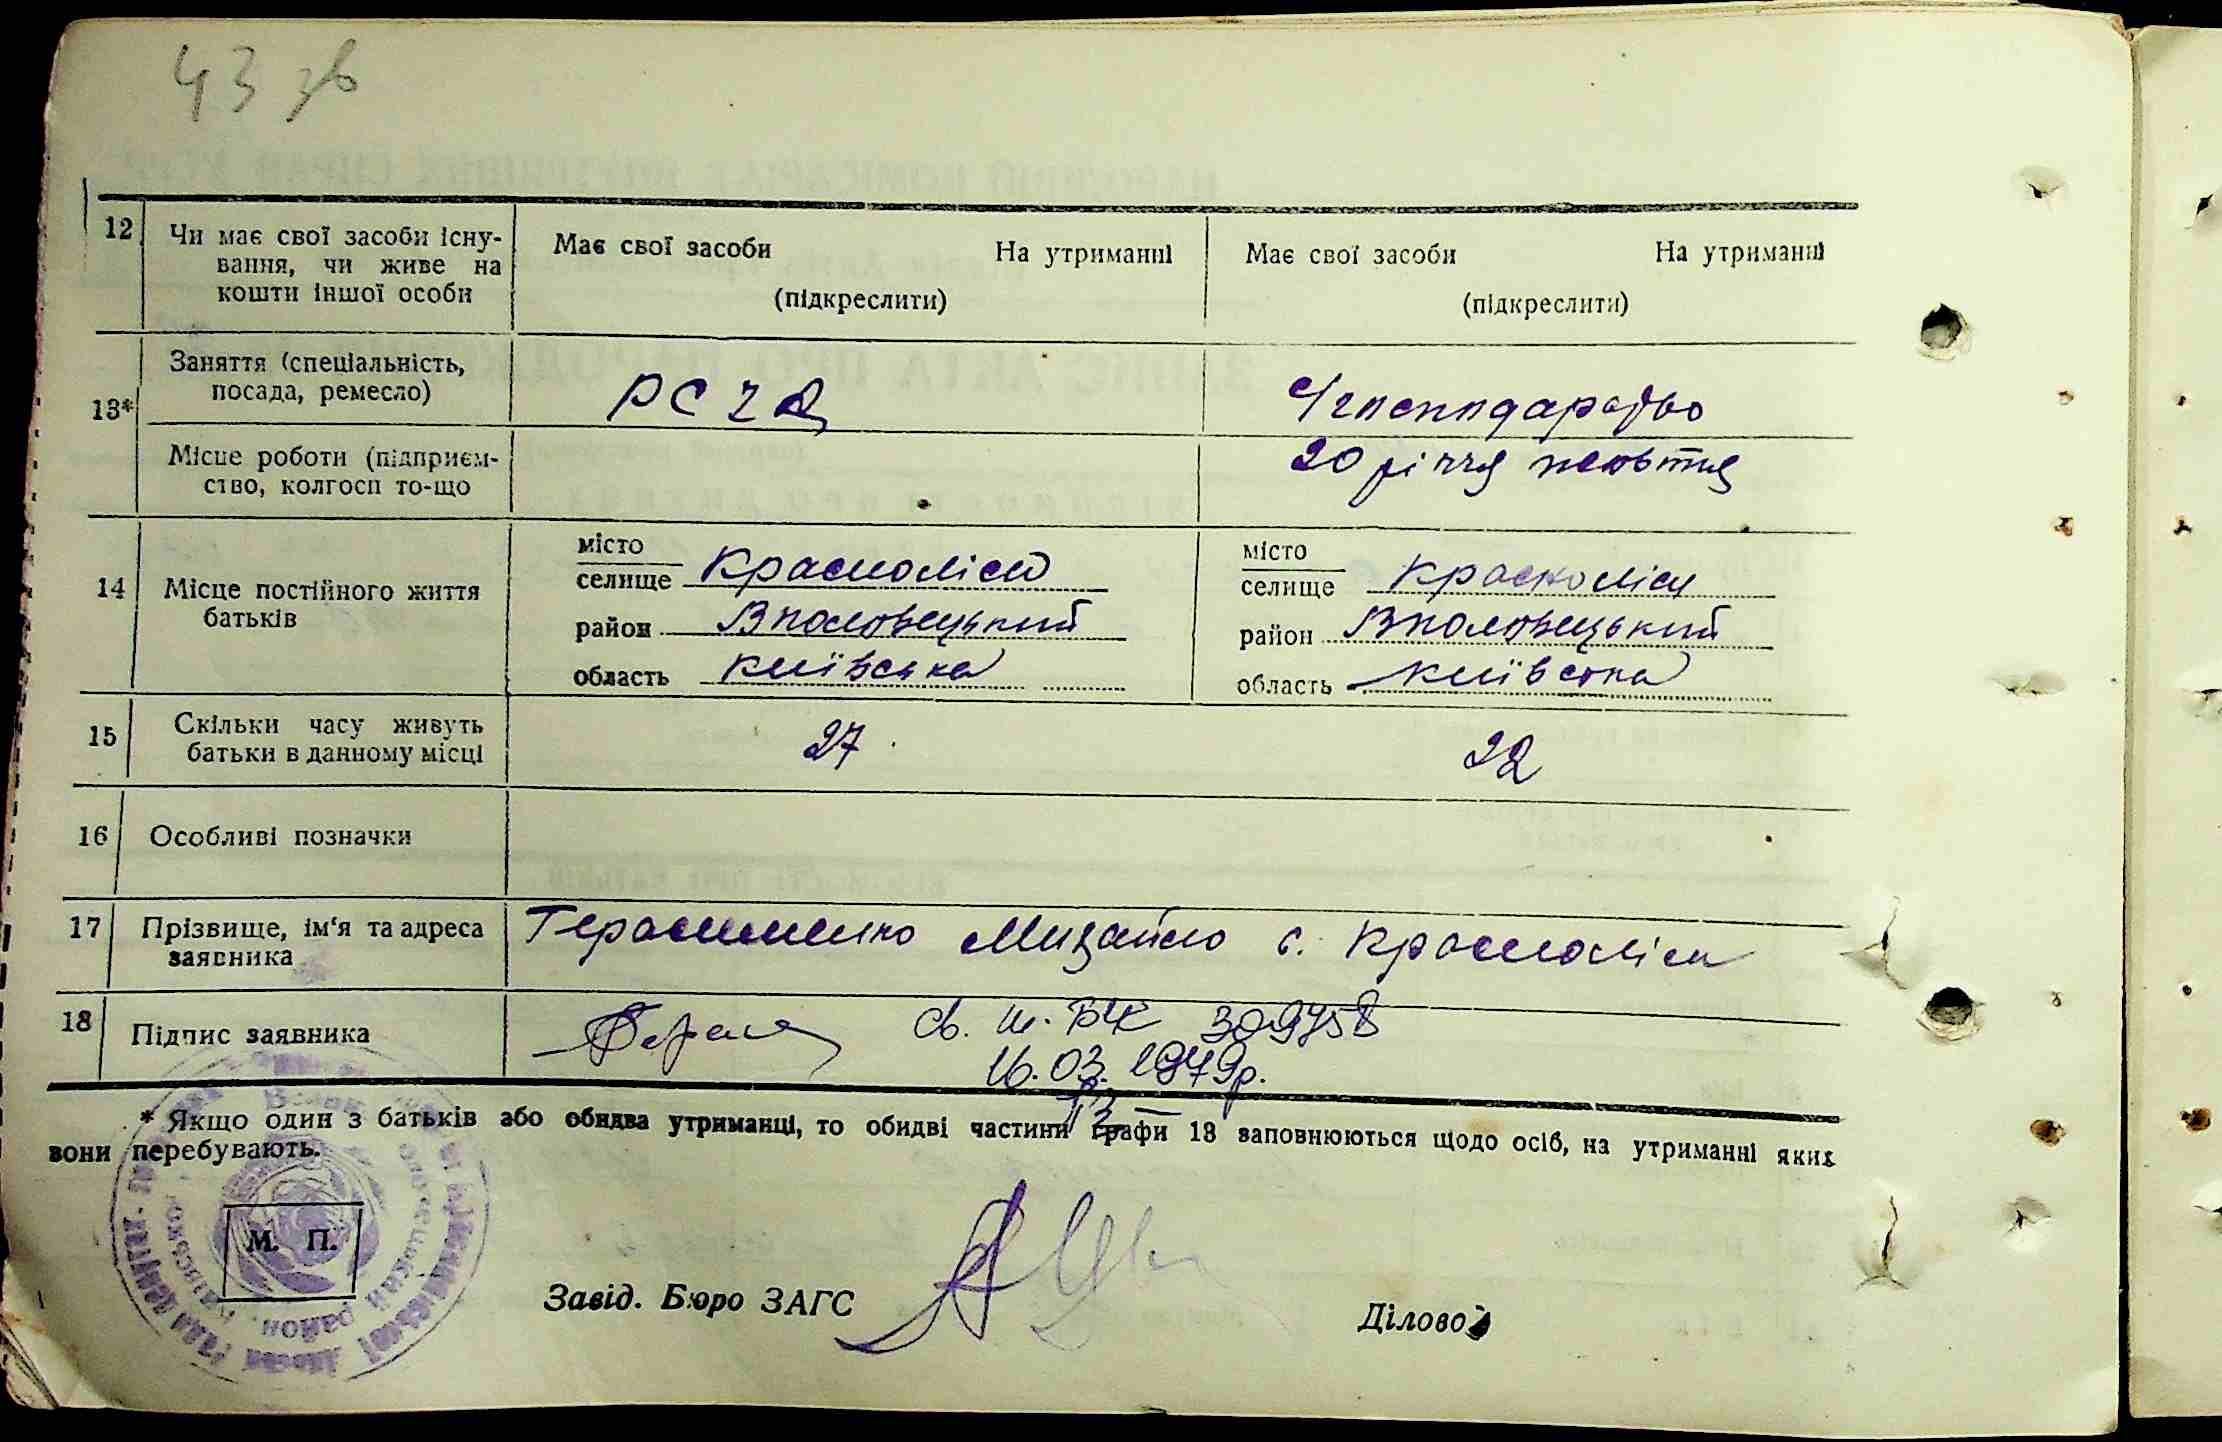 43 зв
12 Чи має свої засоби існу-
вання, чи живе на
кошти іншої особи
Має свої засоби На утриманні
(підкреслити)
Має свої засоби На утриманні
(підкреслити)
13* Заняття (спеціальність,
посада, ремесло)
РСЧА
С/господарство
Місце роботи (підприєм-
ство, колгосп то-що
20 річчя жовтня
14 Місце постійного життя
батьків
місто
селище Краснолісы
район Вполовецький
область Київська
місто
селище Краснолісы
район Вполовецький
область Київська
15 Скільки часу живуть
батьки в данному місці
27
22
16 Особливі позначки
17 Прізвище, ім‘я та адреса
заявника
Герасименко Михайло с. Краснолісы
18 Підпис заявника
св. ІІІ-БК 309758
16.03.1979р.
* Якщо один з батьків або обидва утриманці, то обидві частини графи 13 заповнюються щодо осіб, на утриманні яких
вони перебувають.
М. П.
Завід. Бюро ЗАГС
Діловод